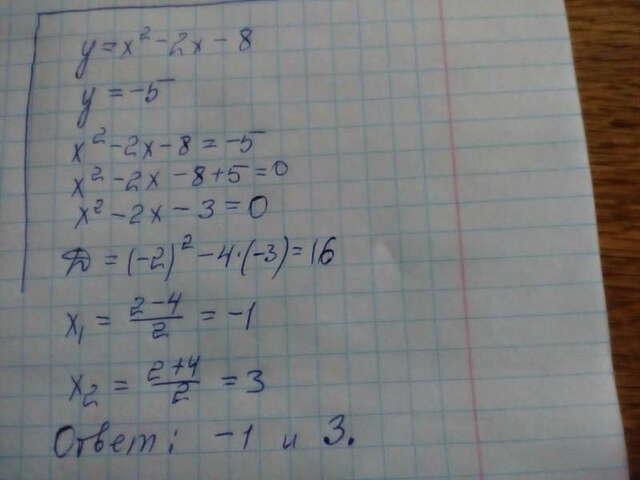 y = x² - 2x - 8
y = -5
x² - 2x - 8 = -5
x² - 2x - 8 + 5 = 0
x² - 2x - 3 = 0
D = (-2)² - 4·(-3) = 16
x₁ = (2-4)/2 = -1
x₂ = (2+4)/2 = 3
Ответ: -1 и 3.